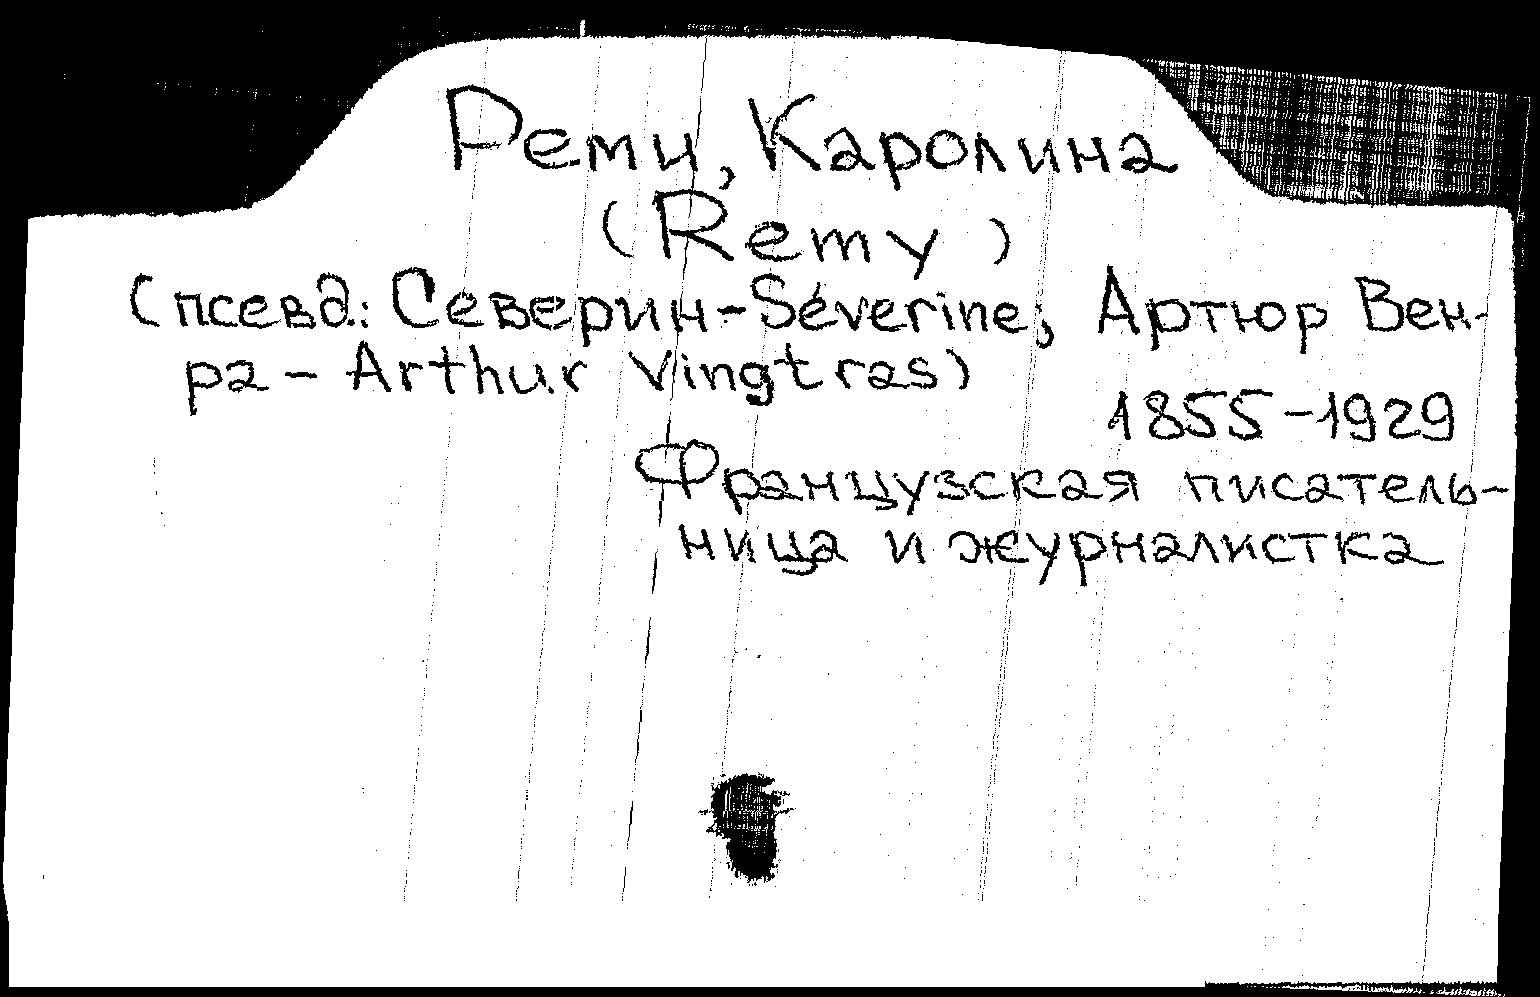 Реми, Каролина
(Remy)
(псевд.: Северин-Séverine, Артюр Вен-
ра - Arthur Vingtras)
1855-1929
Французская писатель-
ница и журналистка